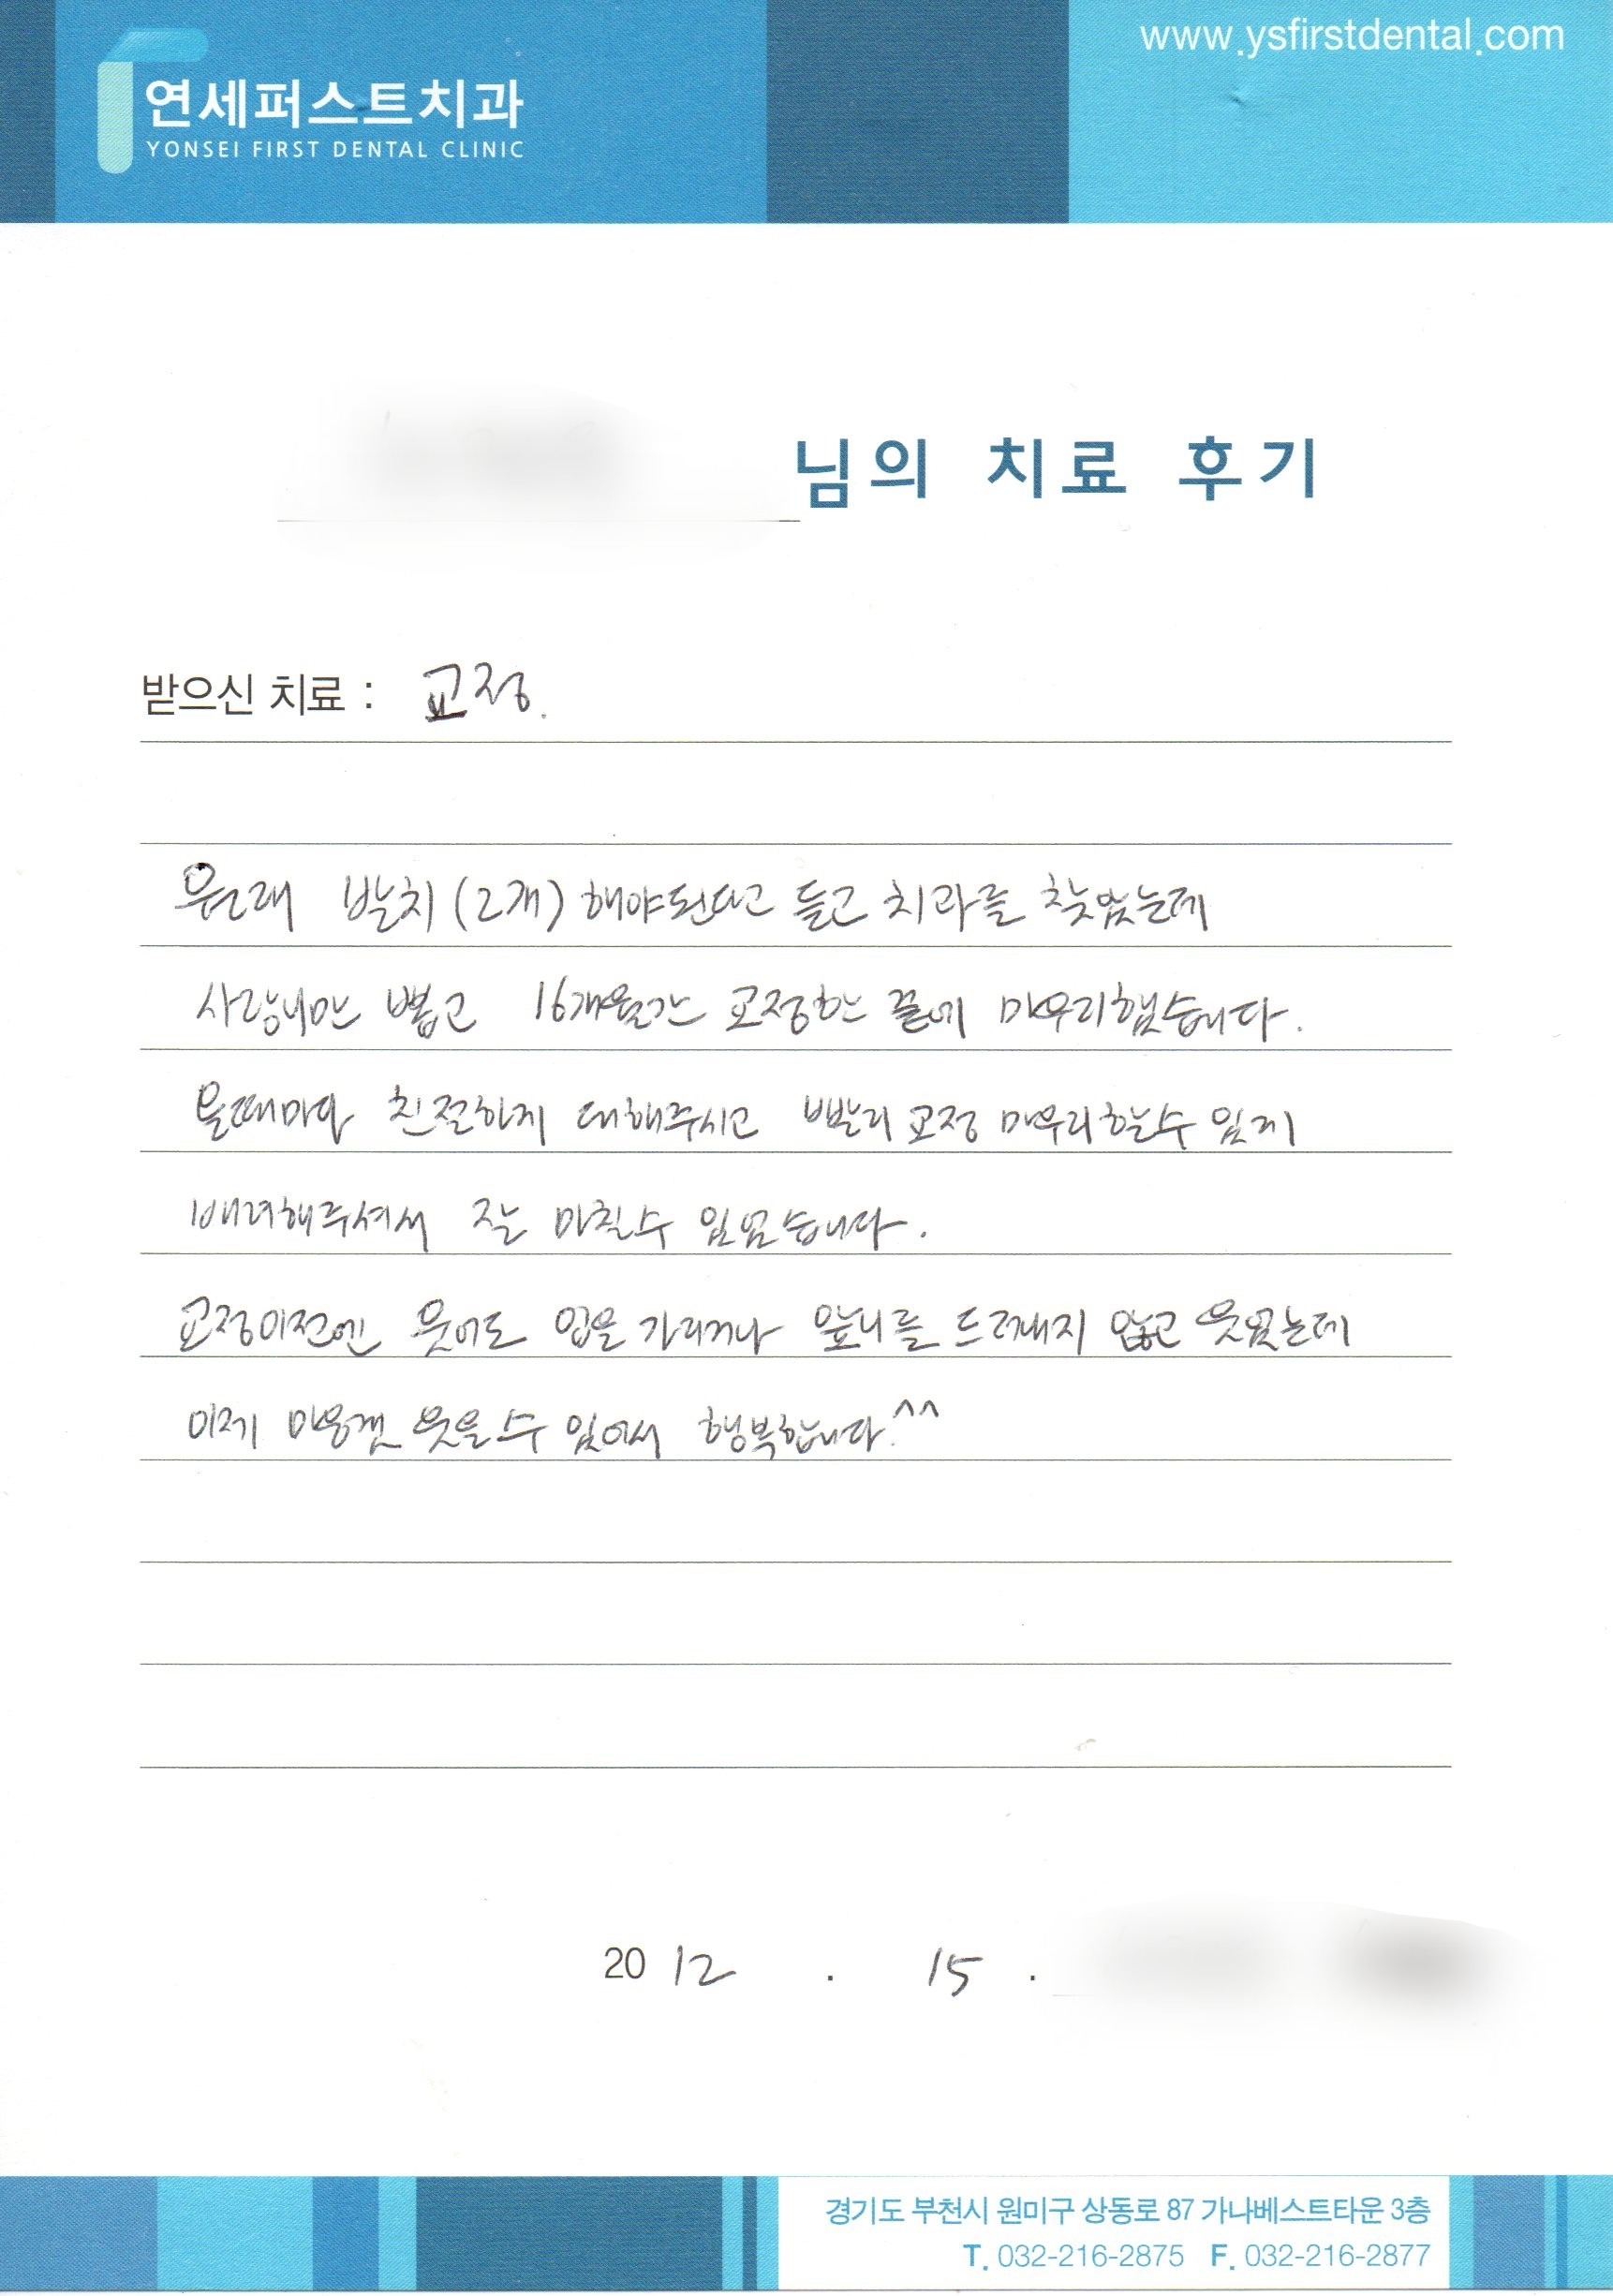 www.ysfirstdental.com
연세퍼스트치과
YONSEI FIRST DENTAL CLINIC
님의 치료 후기
받으신 치료 : 교정.
원래 발치(2개)해야된다고 듣고 치과를 찾았는데
사랑니만 뽑고 16개월간 교정한 끝에 마무리했습니다.
올때마다 친절하게 대해주시고 빨리 교정 마무리할수 있게
배려해주셔서 잘 마칠수 있었습니다.
교정이전엔 웃어도 입을 가리거나 앞니를 드러내지 않고 웃었는데
이제 마음껏 웃을수 있어서 행복합니다.^^
2012 . 15 .
경기도 부천시 원미구 상동로 87 가나베스트타운 3층
T. 032-216-2875 F. 032-216-2877